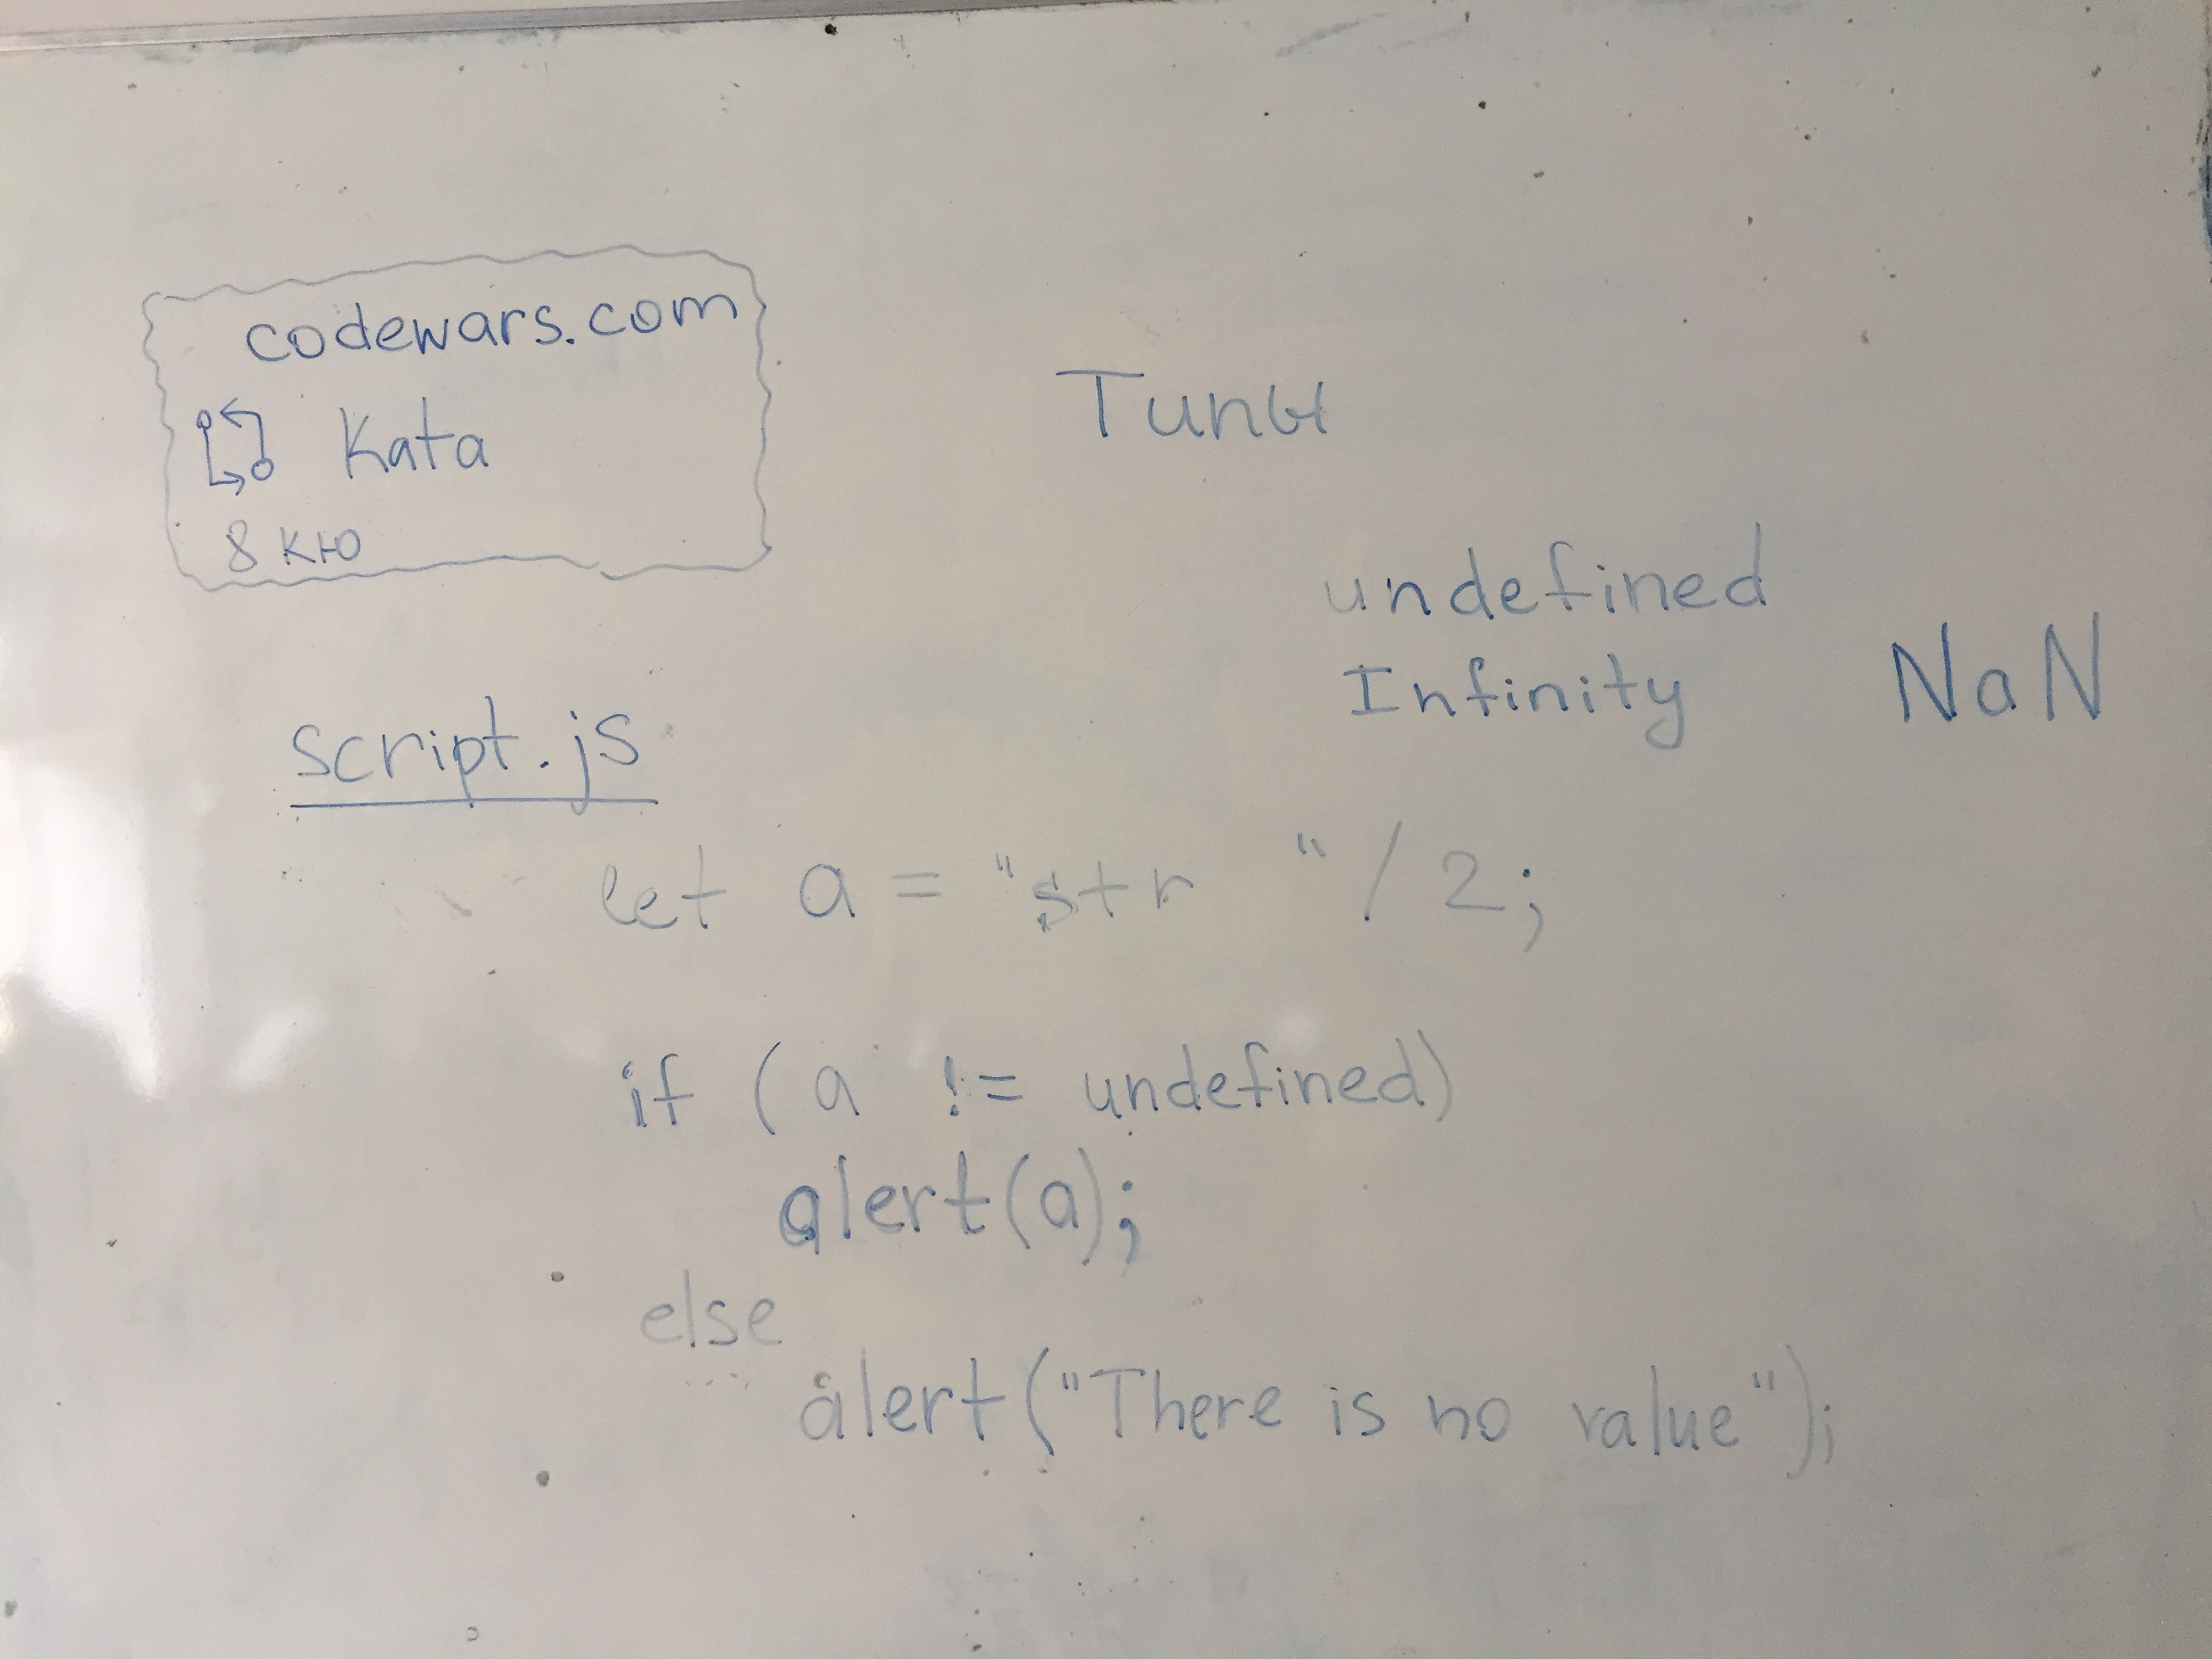 codewars.com
Kata
8 кю
Типы
undefined
Infinity NaN
script.js
let a = "str " / 2;
if (a != undefined)
alert(a);
else
alert("There is no value");